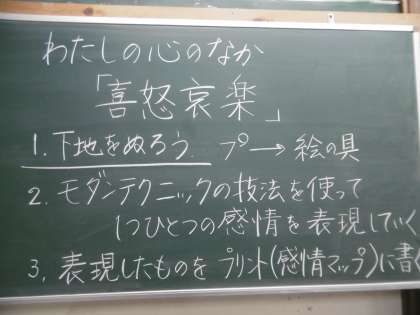 わたしの心のなか
「喜怒哀楽」
1. 下地をぬろう. プ→絵の具
2. モダンテクニックの技法を使って
1つひとつの感情を表現していく
3. 表現したものを プリント(感情マップ)に書く